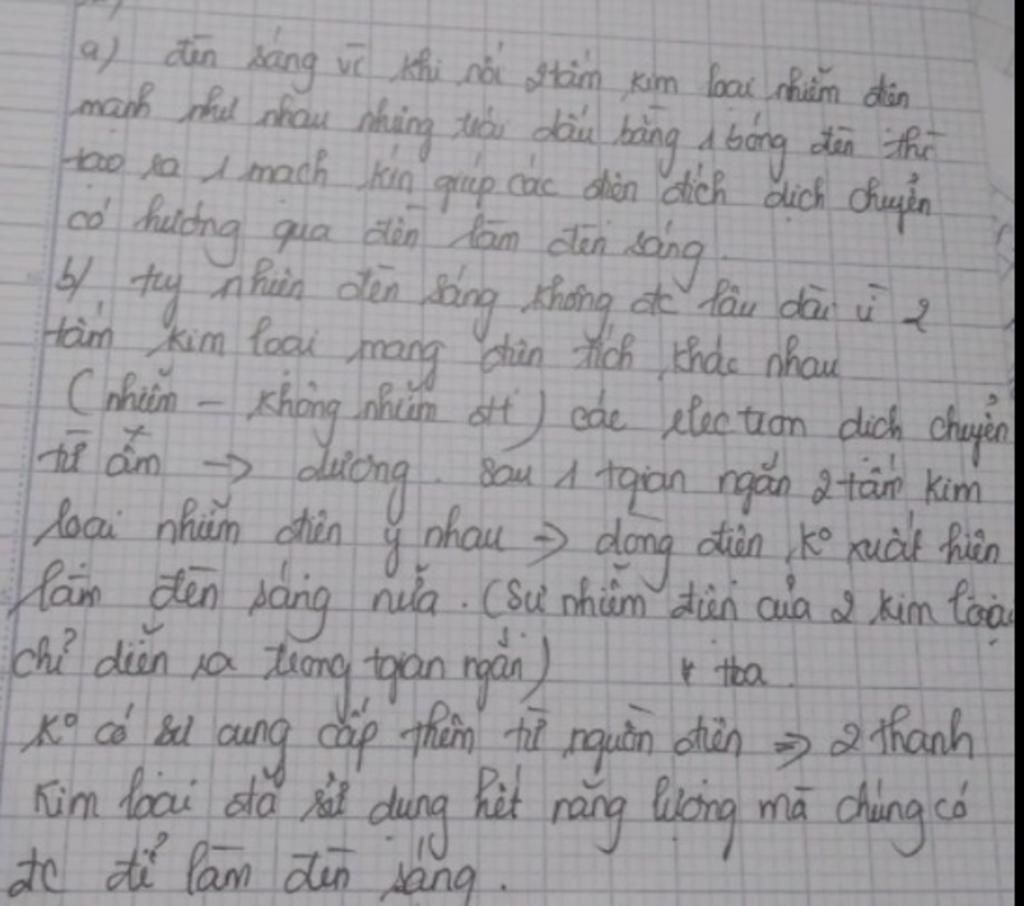 a) đèn sáng vì khi nối 2 tấm kim loại nhiễm điện
mạnh như nhau nhưng trái dấu bằng 1 bóng đèn thì
tạo ra 1 mạch kín giúp các điện tích dịch chuyển
có hướng qua đèn làm đèn sáng
b) tuy nhiên đèn sáng không đc lâu dài vì 2
tấm kim loại mang điện tích khác nhau
(nhiễm - không nhiễm đt) các electron dịch chuyển
từ âm -> dương. sau 1 tgian ngắn 2 tấm kim
loại nhiễm điện ý nhau => dòng điện k° xuất hiện
làm đèn sáng nữa. (Sự nhiễm điện của 2 kim loại
chỉ diễn ra trong tgian ngắn)
K° có sự cung cấp thêm từ nguồn điện => 2 thanh
kim loại đã sử dụng hết năng lượng mà chúng có
đc để làm đèn sáng.